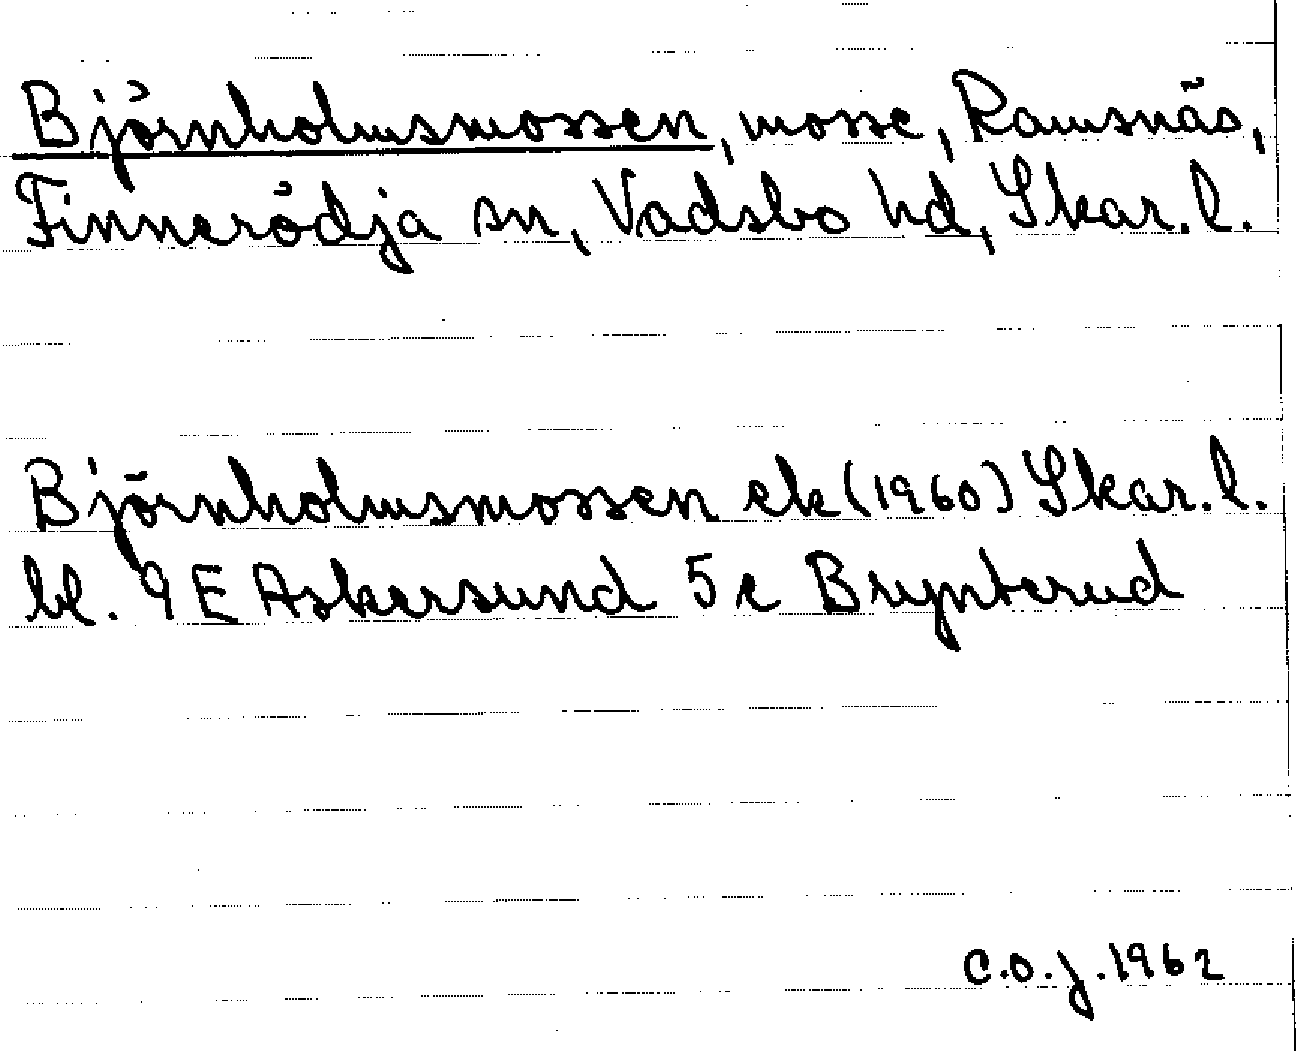 Björnholmsmossen, mosse, Ramsnäs,
Finnerödja sn, Vadsbo hd, Skar. l.
Björnholmsmossen ek (1960) Skar. l.
bl. 9 E Askersund 5 c Brynterud
C.O.J. 1962